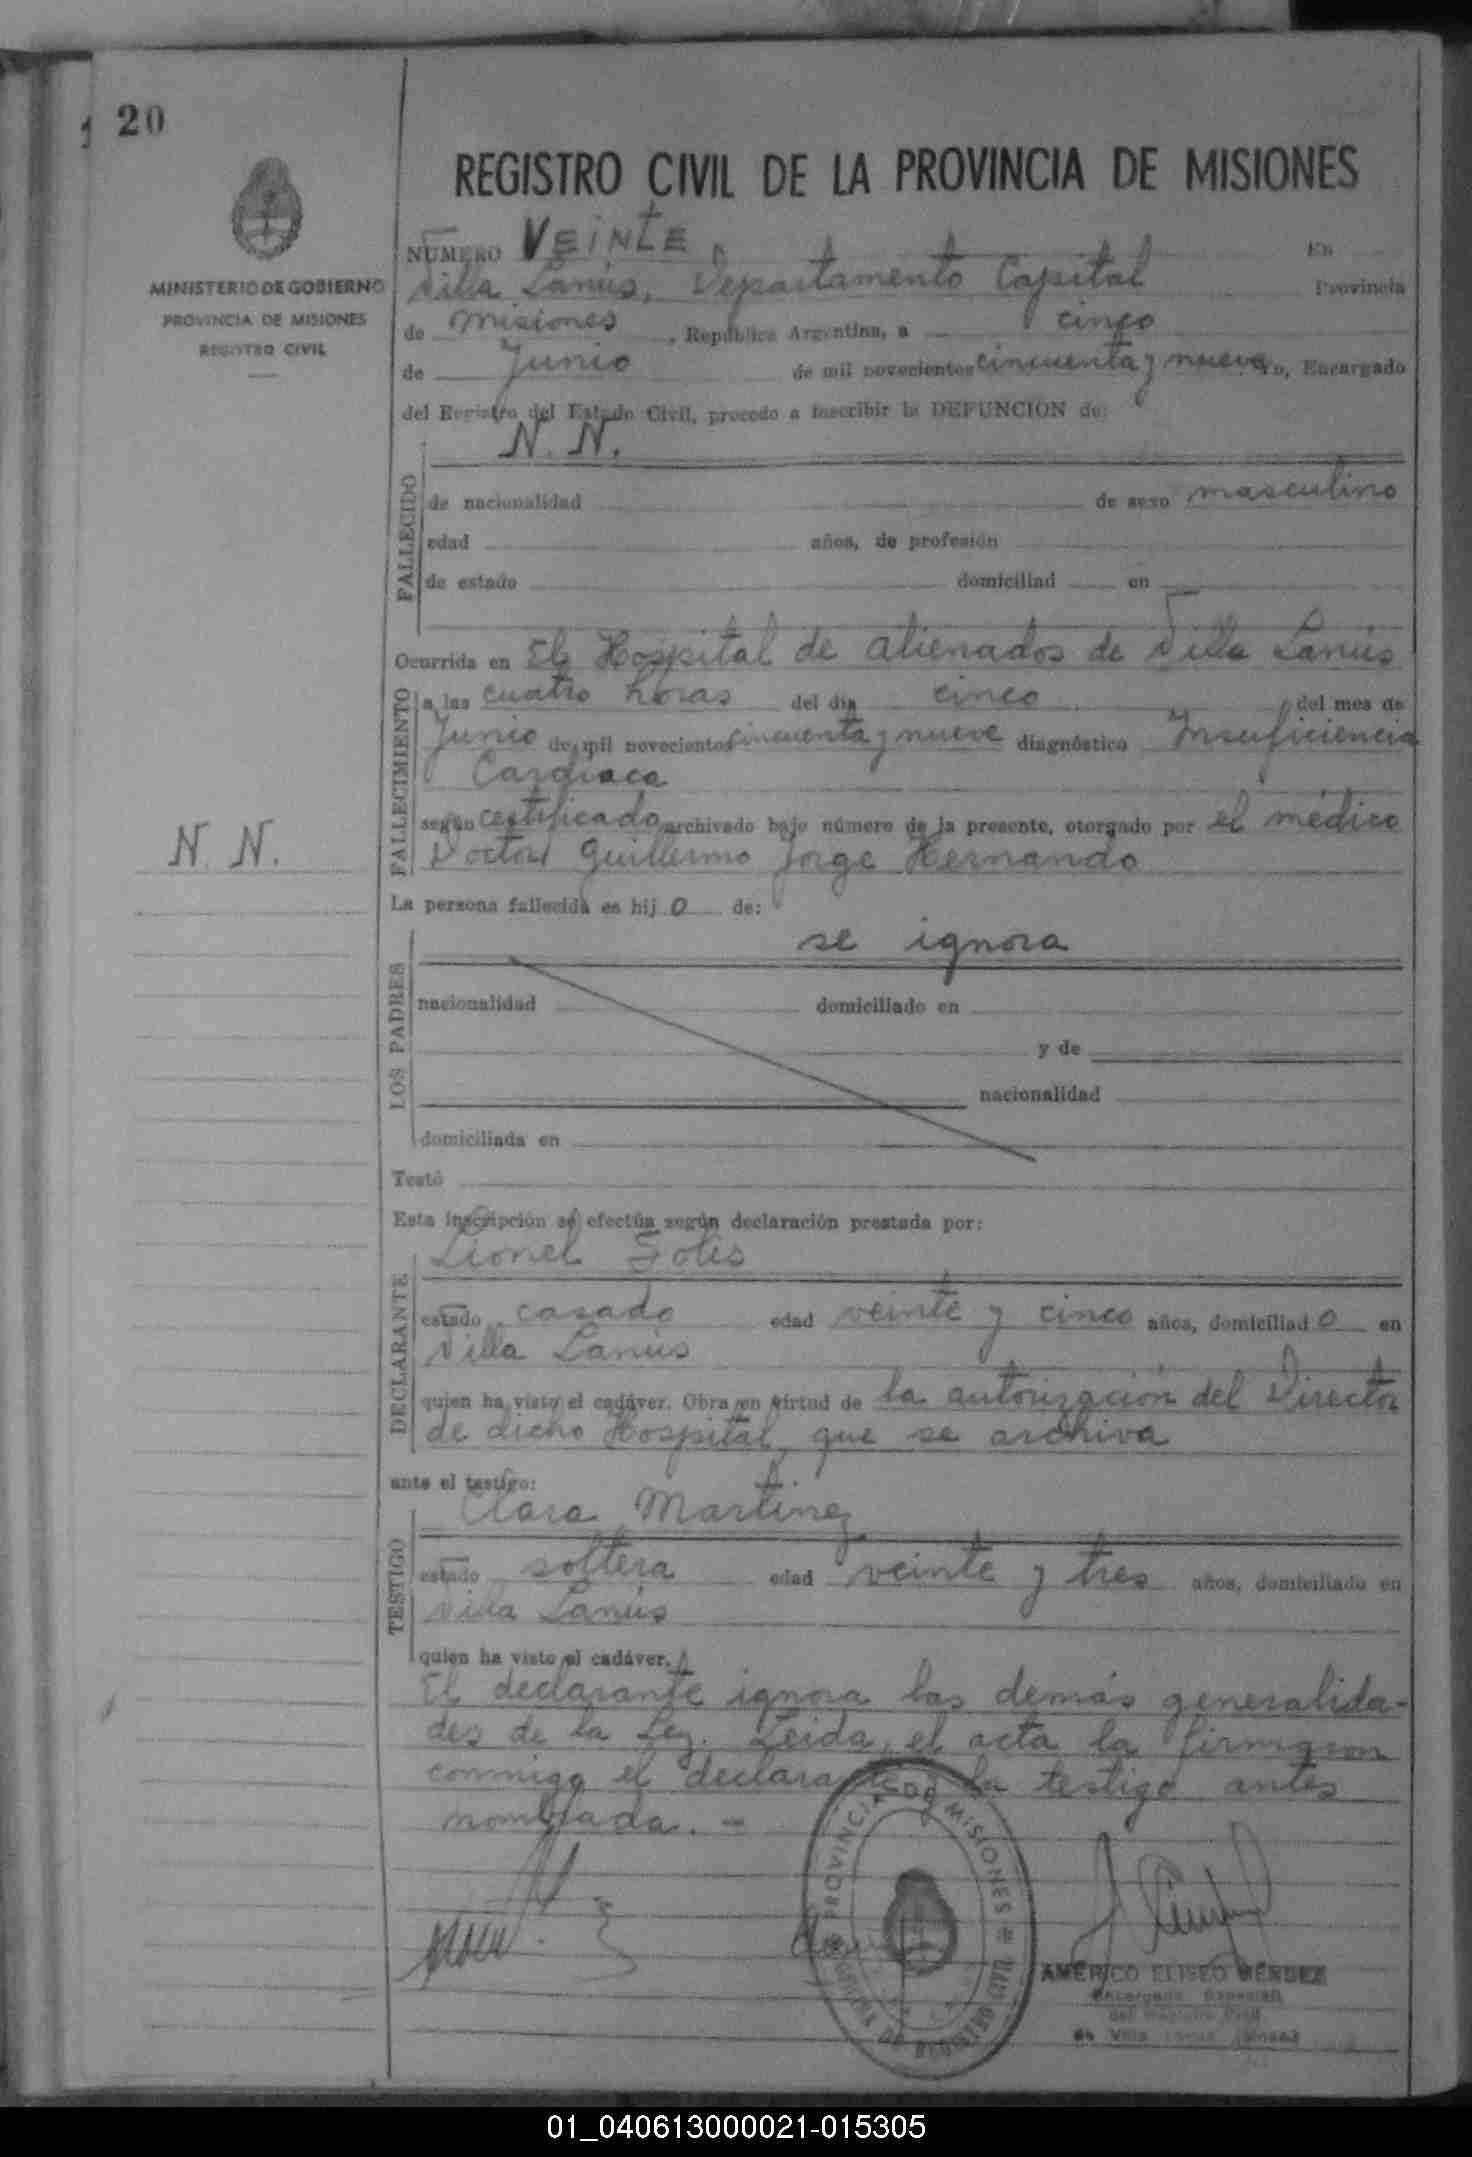 20
REGISTRO CIVIL DE LA PROVINCIA DE MISIONES
MINISTERIO DE GOBIERNO
PROVINCIA DE MISIONES
REGISTRO CIVIL
NÚMERO VEINTE En
Villa Lanús, Departamento Capital Provincia
de Misiones, República Argentina, a cinco
de Junio de mil novecientos cincuenta y nueve Yo, Encargado
del Registro del Estado Civil, procedo a inscribir la DEFUNCION de:
FALLECIDO
N. N.
de nacionalidad de sexo masculino
edad años, de profesión
de estado domiciliad en
Ocurrida en El Hospital de alienados de Villa Lanús
FALLECIMIENTO
a las cuatro horas del día cinco del mes de
Junio de mil novecientos cincuenta y nueve diagnóstico Insuficiencia
Cardíaca
según certificado archivado bajo número de la presente, otorgado por el médico
Doctor Guillermo Jorge Hernando
N. N.
La persona fallecida es hij o de:
LOS PADRES
se ignora
nacionalidad domiciliado en
y de
nacionalidad
domiciliada en
Testó
Esta inscripción se efectúa según declaración prestada por:
DECLARANTE
Lionel Solis
estado casado edad veinte y cinco años, domiciliad o en
Villa Lanús
quien ha visto el cadáver. Obra en virtud de la autorización del Director
de dicho Hospital, que se archiva
ante el testigo:
TESTIGO
Clara Martínez
estado soltera edad veinte y tres años, domiciliado en
Villa Lanús
quien ha visto el cadáver.
El declarante ignora las demás generalida-
des de la Ley. Leida, el acta la firmaron
conmigo el declarante y la testigo antes
nombrada. -
PROVINCIA DE MISIONES
DE REGISTRO CIVIL
AMÉRICO ELISEO MÉNDEZ
Encargado
del Registro Civil
de Villa Lanús
01_040613000021-015305